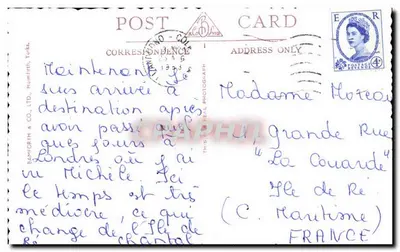 POST CARD
CORRESPONDENCE
ADDRESS ONLY
E R
Maintenant j
suis arrivée à
destination après
avoir passé quel
ques jours à
Londres où j'ai
vu Michèle. Ici
le temps est très
médiocre, ce qui
change de l'Ile de
Ré. Chantal
Madame Moreau
Grande Rue
"La Couarde"
Ile de Ré
(C. Maritime)
FRANCE